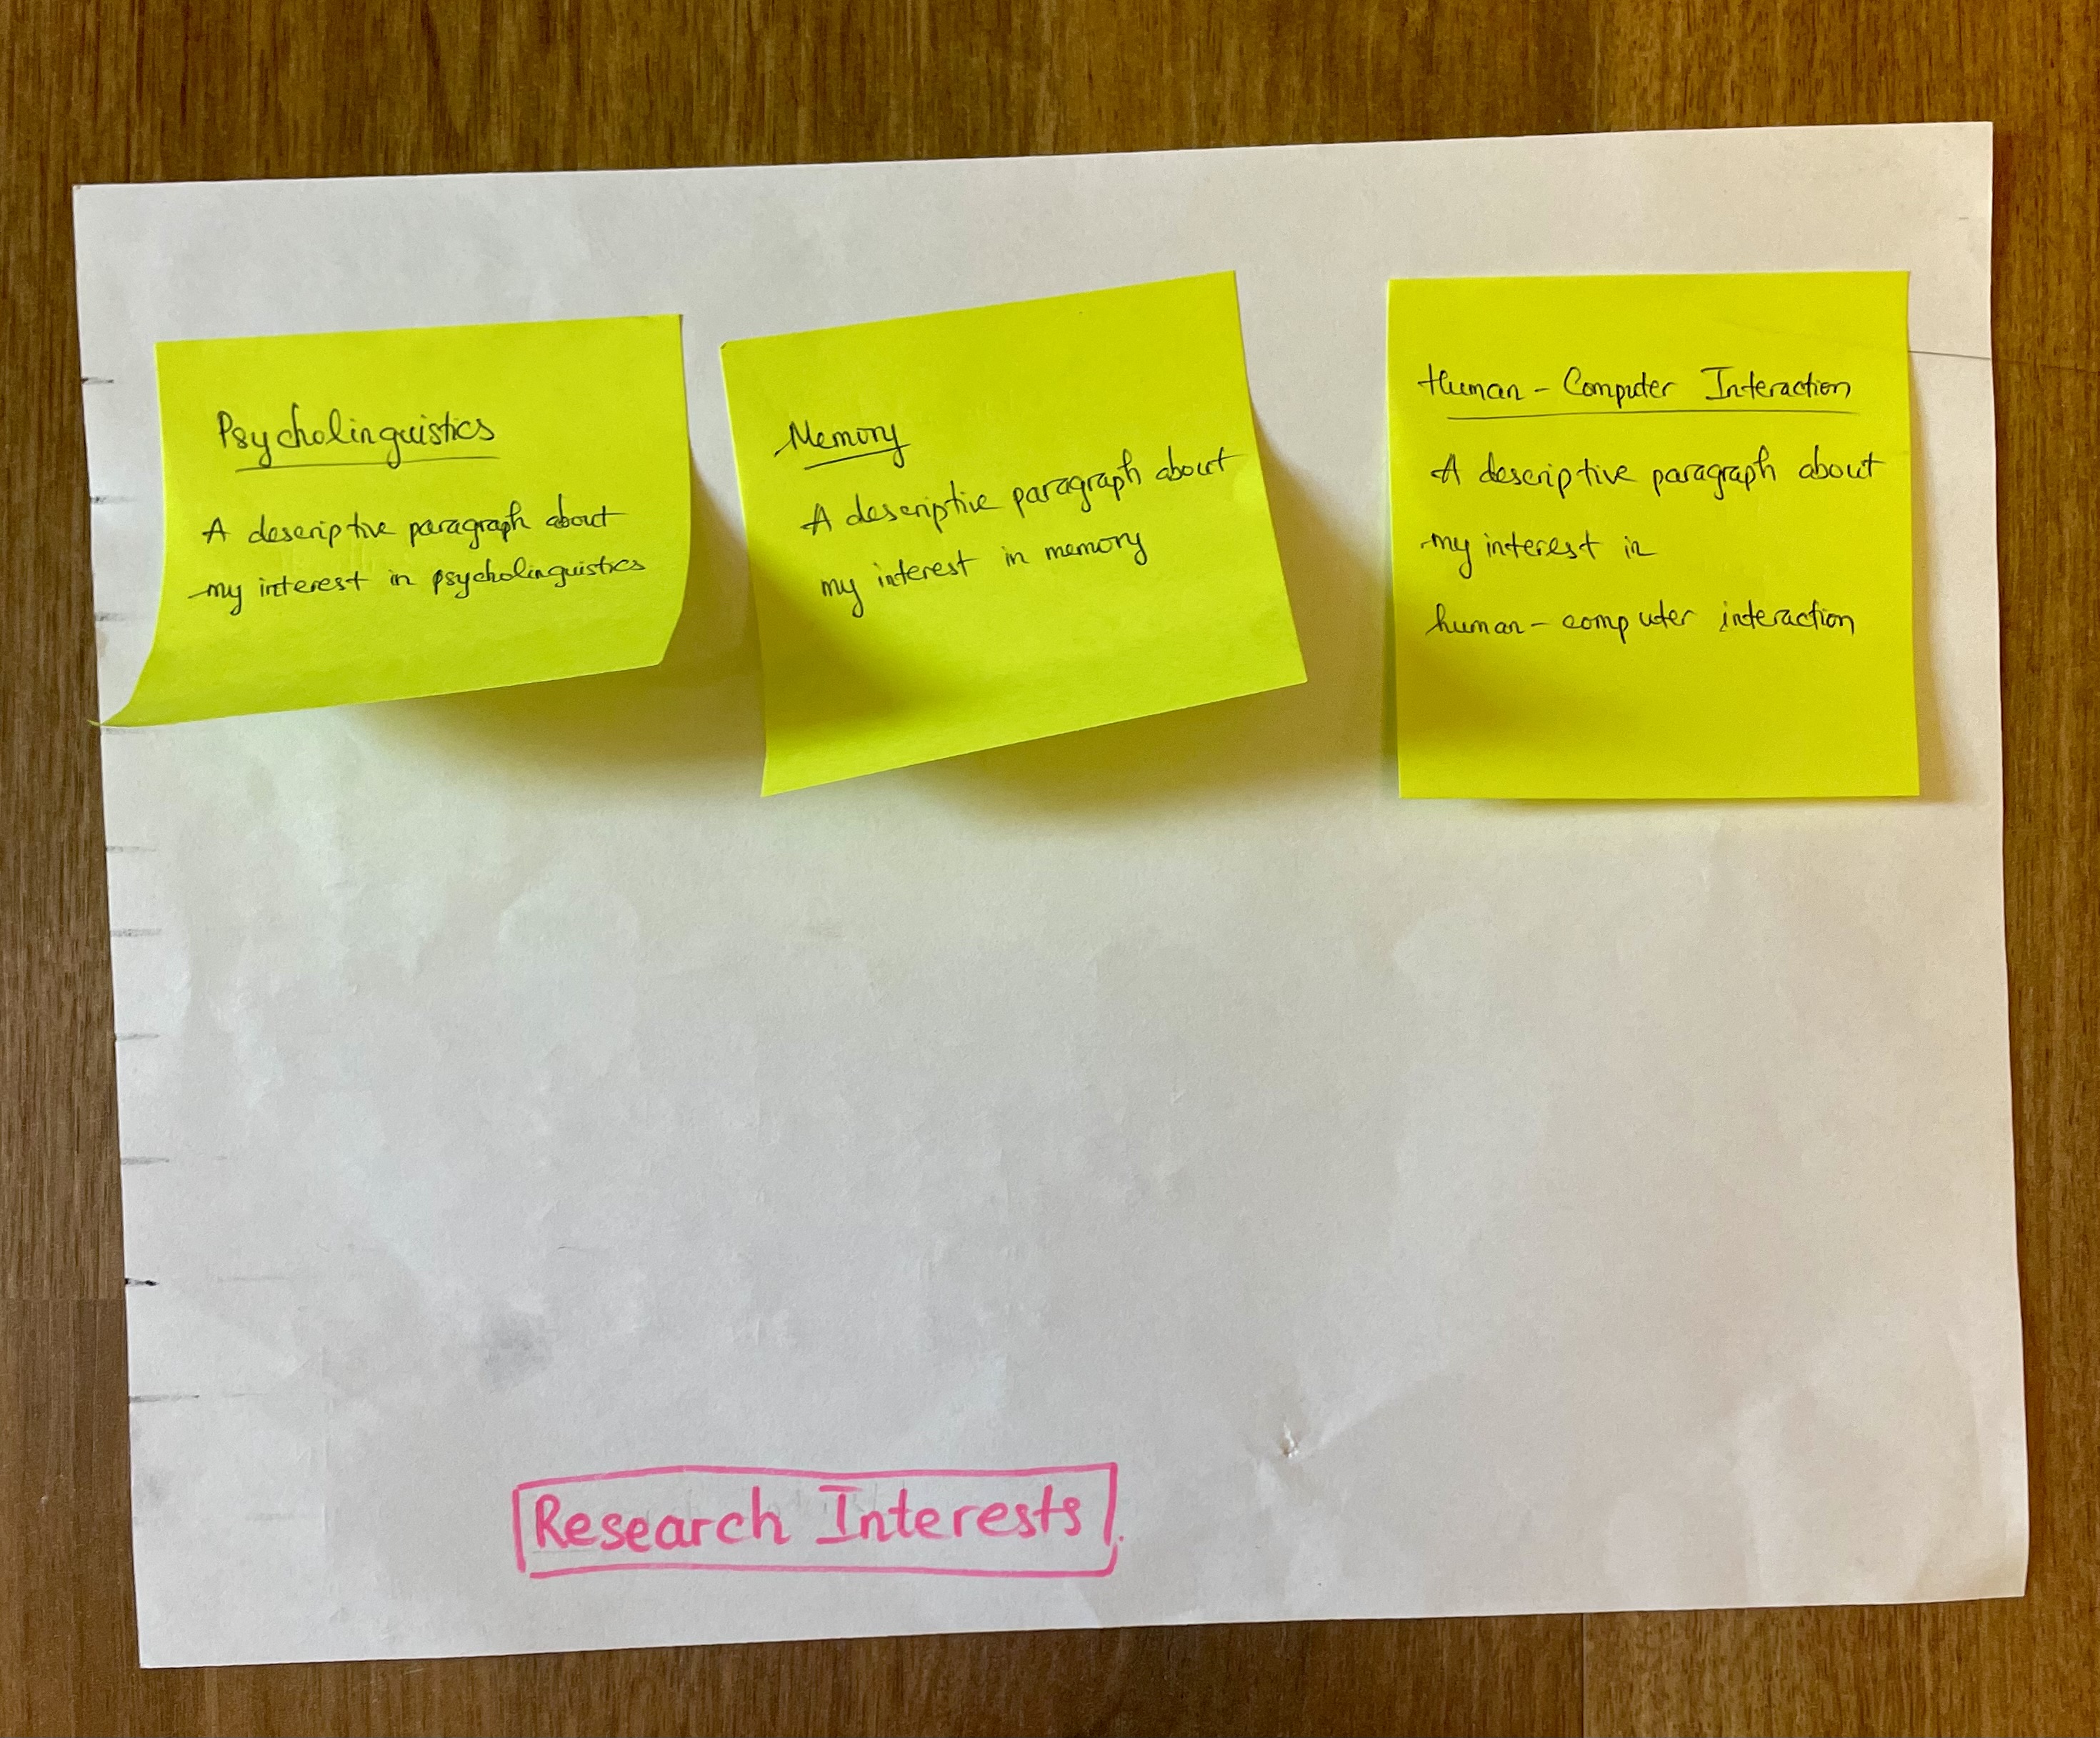 Psycholinguistics
A descriptive paragraph about
my interest in psycholinguistics
Memory
A descriptive paragraph about
my interest in memory
Human - Computer Interaction
A descriptive paragraph about
my interest in
human - computer interaction
Research Interests